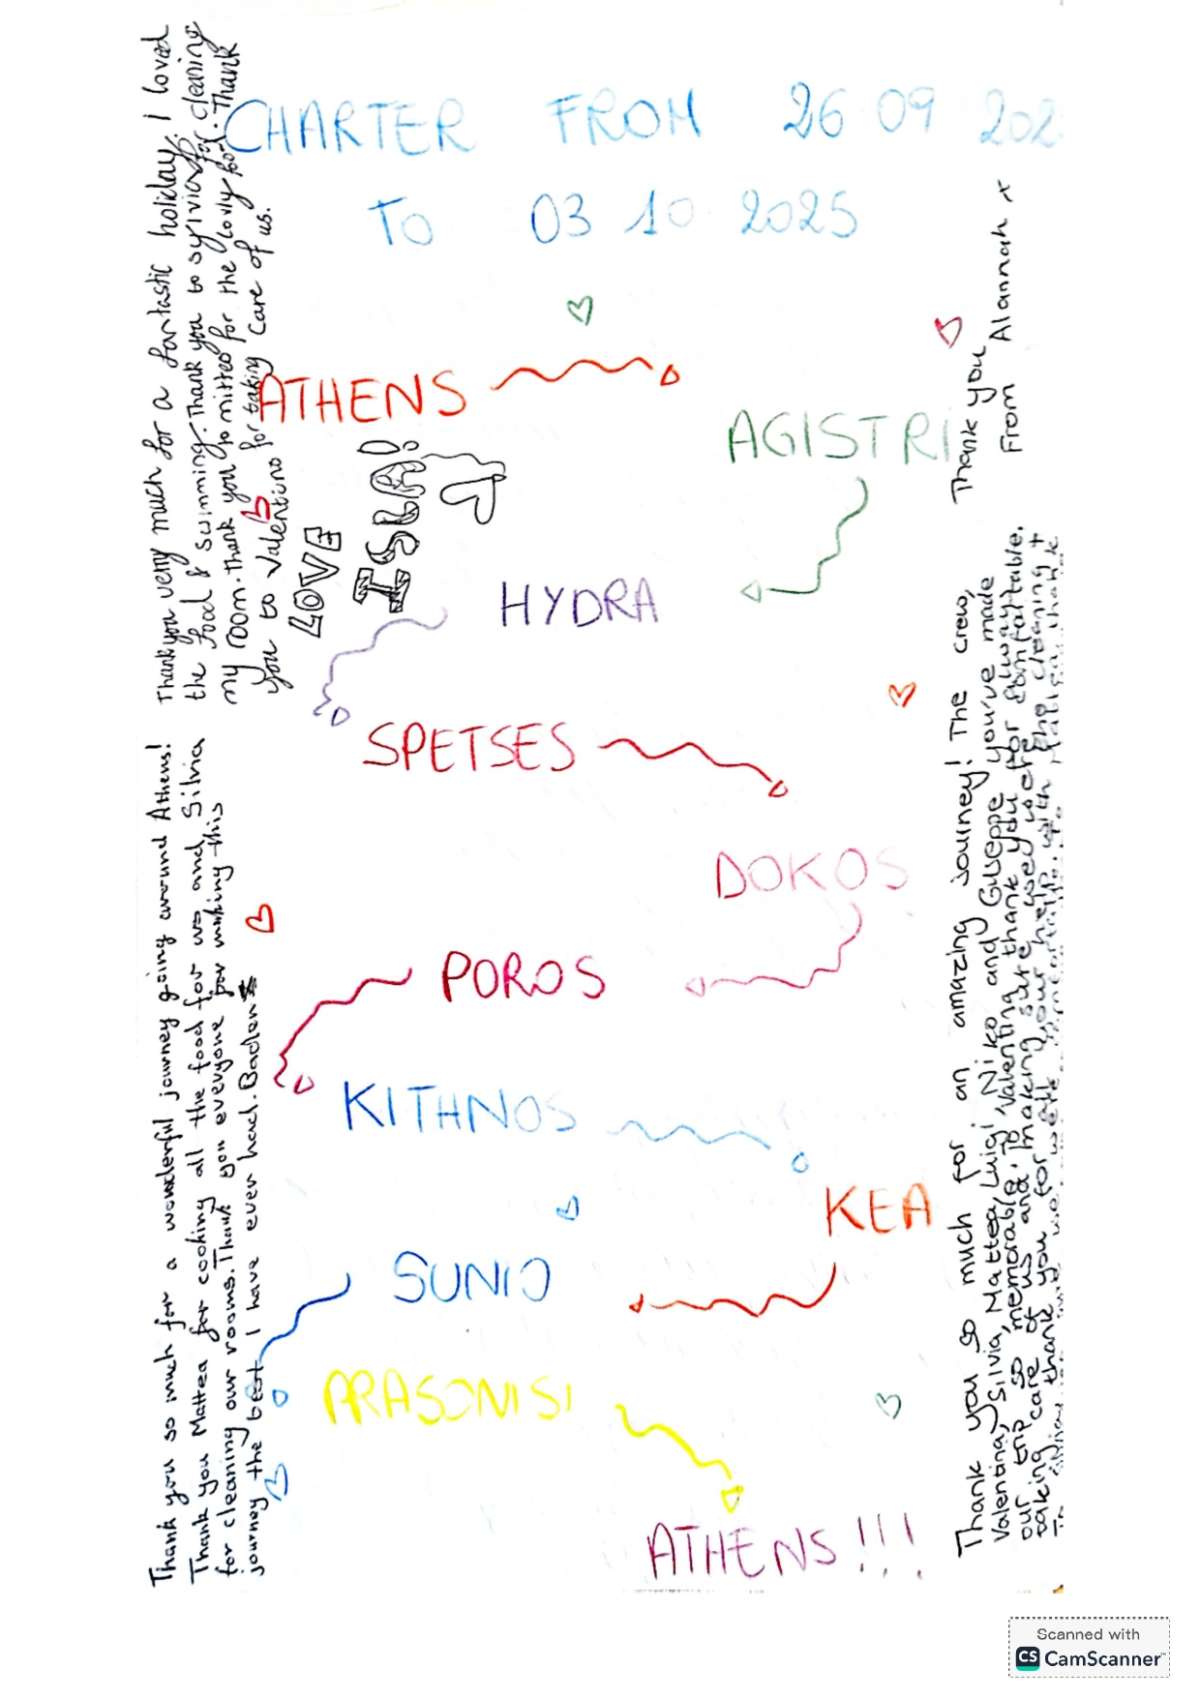 CHARTER FROM 26 09 202
TO 03 10 2025
ATHENS
AGISTRI
HYDRA
SPETSES
DOKOS
POROS
KITHNOS
KEA
SUNIO
ARASONISI
ATHENS!!!
Thank you verry much for a fantastic holiday. I loved
the food & swimming. Thank you to sylvia for cleaning
my room. Thank you to mitteo for the lovly food. Thank
you to Valentino for taking care of us.
LOVE
ISLA!
Thank you so much for a wonderful journey going around Athens!
Thank you Mattea for cooking all the food for us and Silvia
for cleaning our rooms. Thank you everyone for making this
journey the best I have ever had.
Thank you so much for an amazing journey! The crew,
Valentina, Silvia, Mattea, Luigi, Niko and Giuseppe you've made
our trip so memorable. To Valentina thank you for always
taking care of us and making sure we were comfortable.
thank you for your help with the cleaning +
Thank you
From Alannah x
Scanned with
CS CamScanner